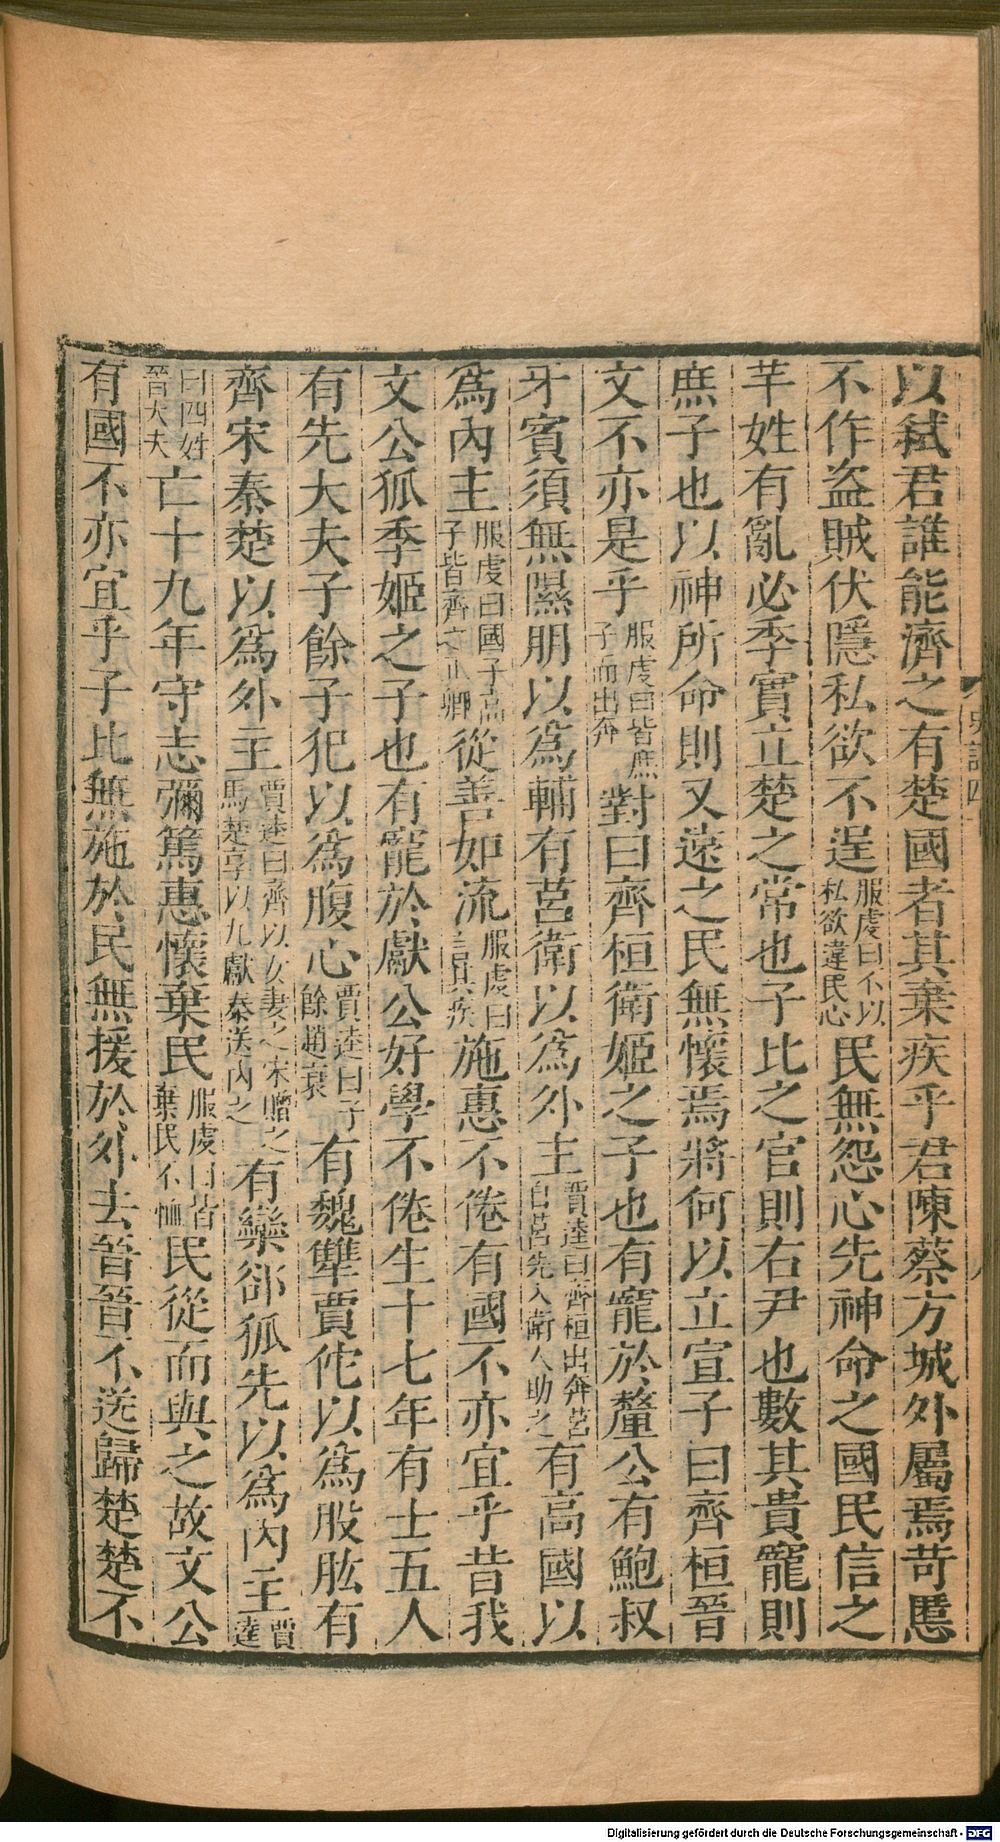 以弑君誰能濟之有楚國者其棄疾乎君陳蔡方城外屬焉苛慝
不作盗賊伏隱私欲不逞服虔曰不以私欲違民心民無怨心先神命之國民信之
芊姓有亂必季實立楚之常也子比之官則右尹也數其貴寵則
庶子也以神所命則又遠之民無懷焉將何以立宣子曰齊桓晉
文不亦是乎服虔曰皆庶子而出奔對曰齊桓衛姬之子也有寵於釐公有鮑叔
牙賓須無隰朋以爲輔有莒衛以爲外主賈逵曰齊桓出奔莒自莒先入衛人助之有高國以
爲內主服虔曰國子高子皆齊之正卿從善如流服虔曰言其疾施惠不倦有國不亦宜乎昔我
文公狐季姬之子也有寵於獻公好學不倦生十七年有士五人
有先大夫子餘子犯以爲腹心賈逵曰子餘趙衰有魏犫賈佗以爲股肱有
齊宋秦楚以爲外主賈逵曰齊以女妻之宋贈之馬楚享以九獻秦送內之有欒郤狐先以爲內主賈逵
曰四姓晉大夫亡十九年守志彌篤惠懷棄民服虔曰皆棄民不恤民從而與之故文公
有國不亦宜乎子比無施於民無援於外去晉晉不送歸楚楚不
史記四
八
Digitalisierung gefördert durch die Deutsche Forschungsgemeinschaft - DFG